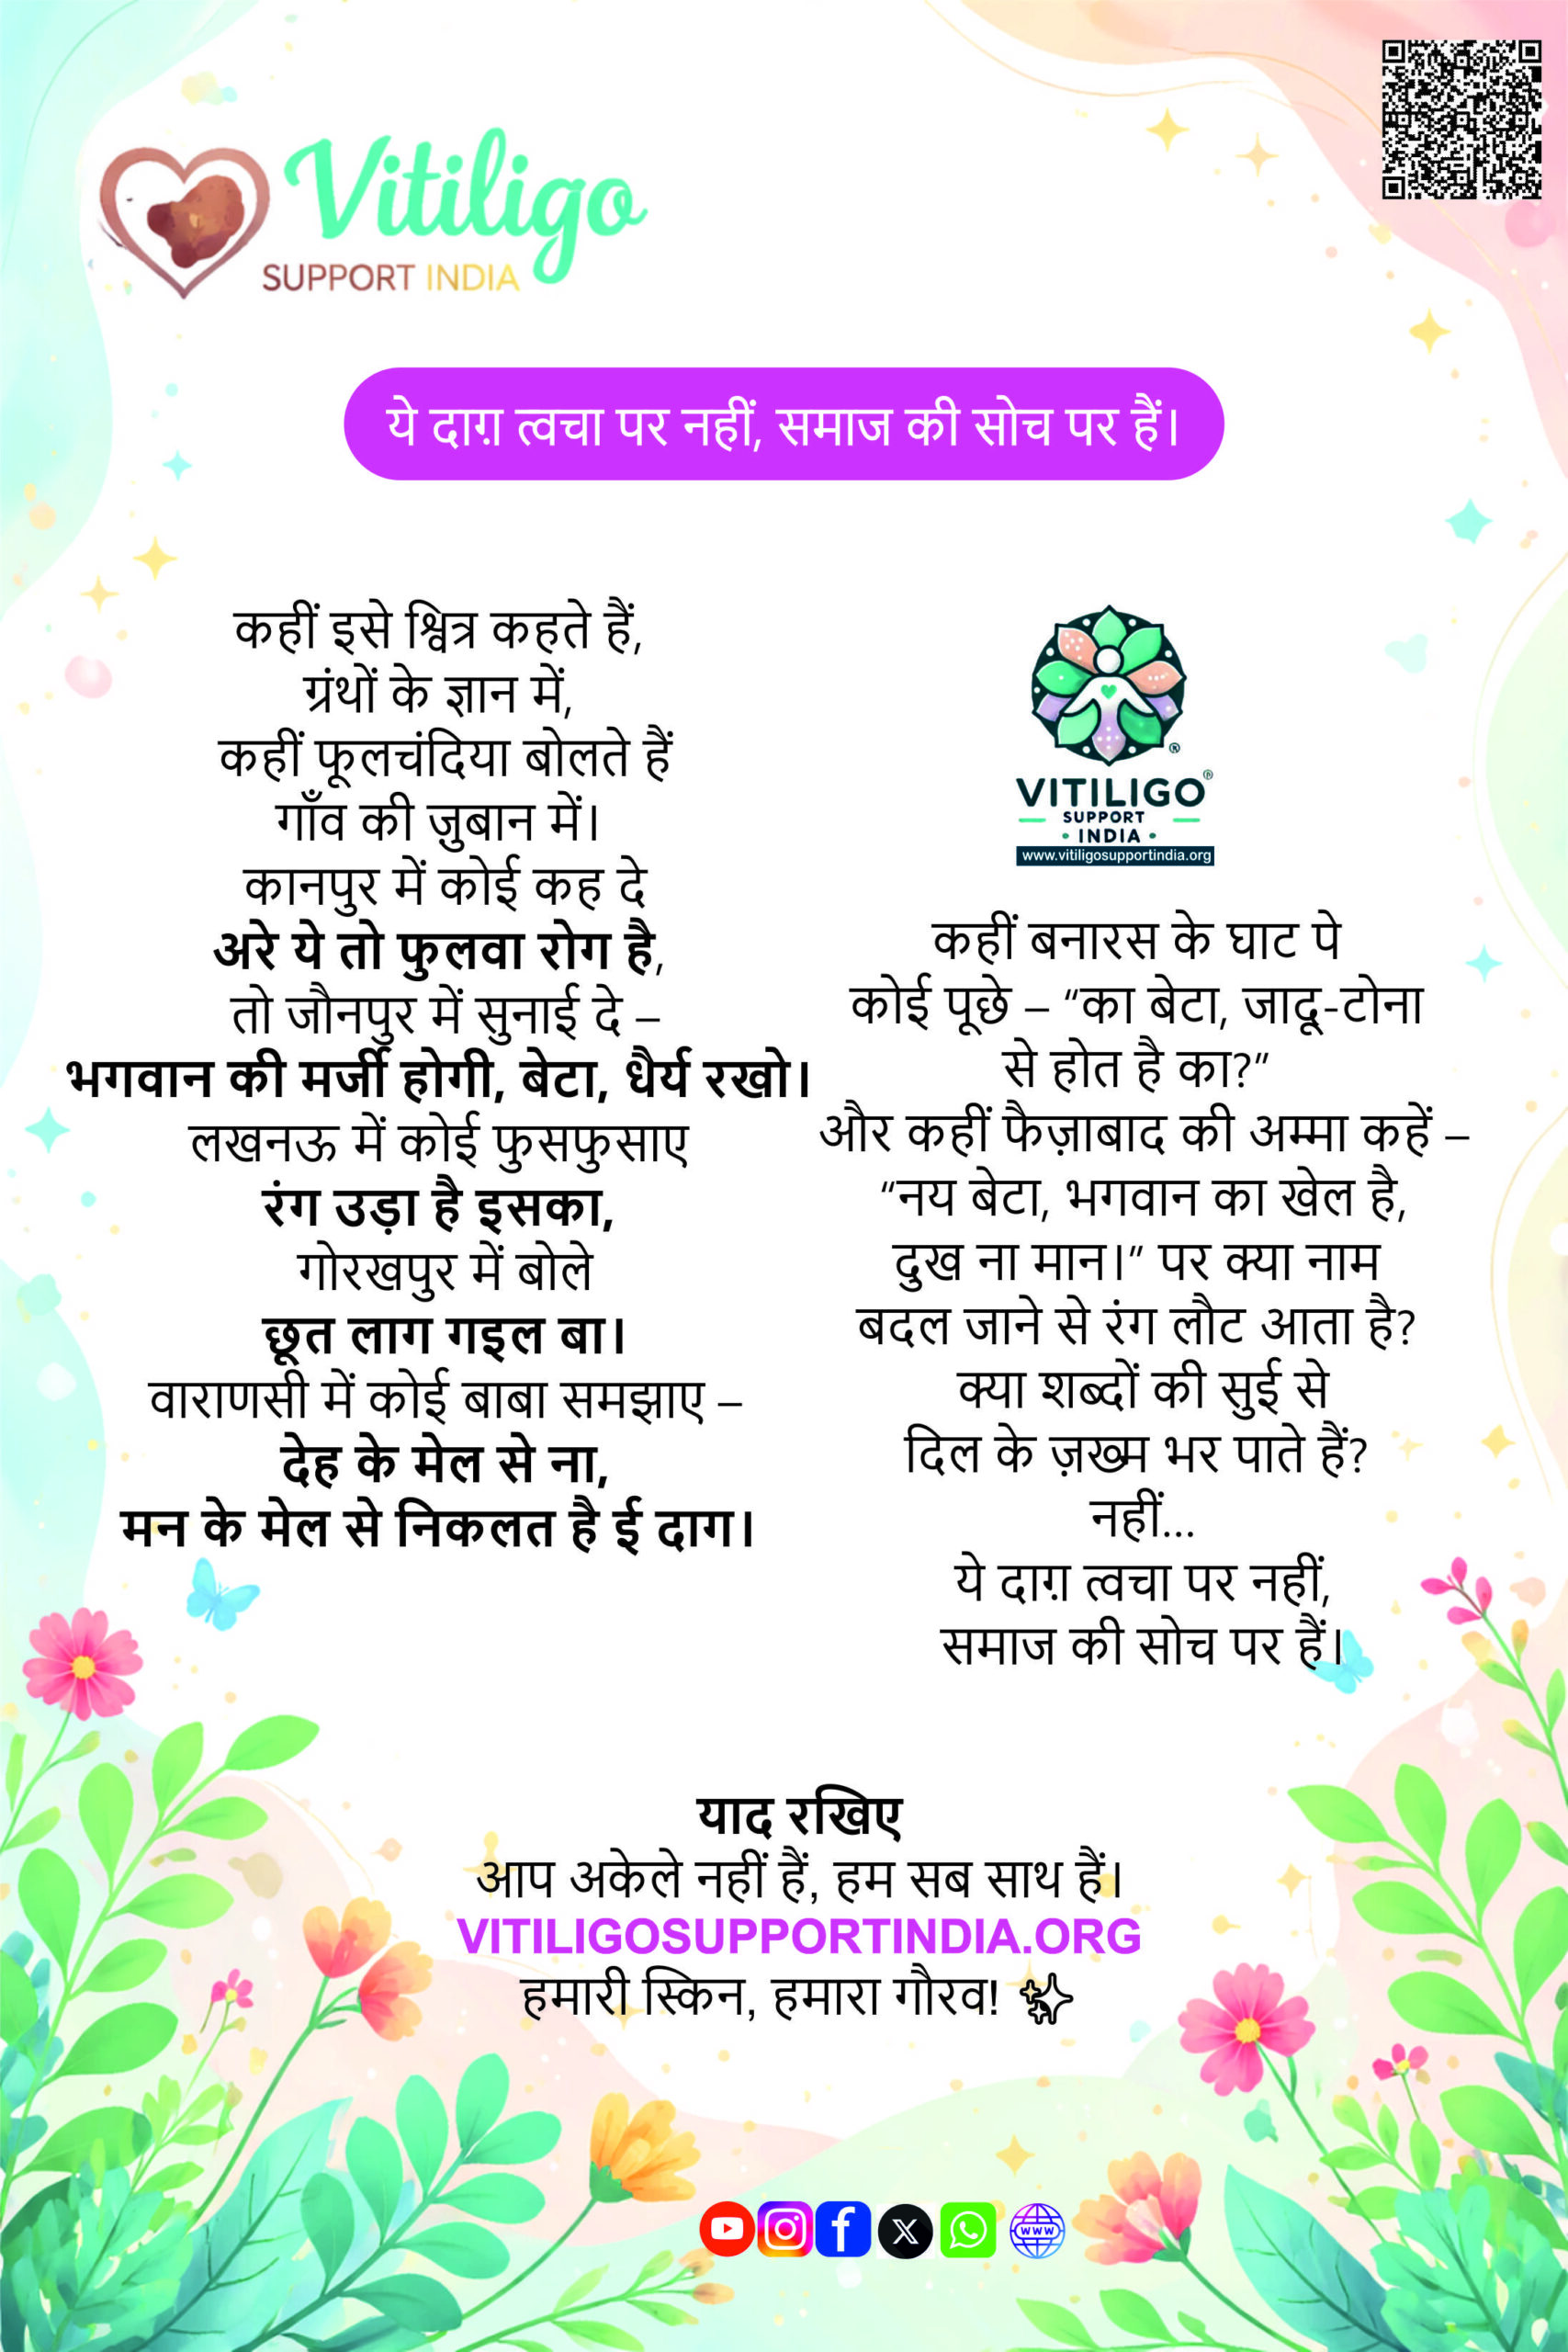 Vitiligo
SUPPORT INDIA
ये दाग़ त्वचा पर नहीं, समाज की सोच पर हैं।
कहीं इसे श्वित्र कहते हैं,
ग्रंथों के ज्ञान में,
कहीं फूलचंदिया बोलते हैं
गाँव की ज़ुबान में।
कानपुर में कोई कह दे
अरे ये तो फुलवा रोग है,
तो जौनपुर में सुनाई दे –
भगवान की मर्जी होगी, बेटा, धैर्य रखो।
लखनऊ में कोई फुसफुसाए
रंग उड़ा है इसका,
गोरखपुर में बोले
छूत लाग गइल बा।
वाराणसी में कोई बाबा समझाए –
देह के मेल से ना,
मन के मेल से निकलत है ई दाग।
VITILIGO®
SUPPORT
• INDIA •
www.vitiligosupportindia.org
कहीं बनारस के घाट पे
कोई पूछे – “का बेटा, जादू-टोना
से होत है का?”
और कहीं फैज़ाबाद की अम्मा कहें –
“नय बेटा, भगवान का खेल है,
दुख ना मान।” पर क्या नाम
बदल जाने से रंग लौट आता है?
क्या शब्दों की सुई से
दिल के ज़ख्म भर पाते हैं?
नहीं...
ये दाग़ त्वचा पर नहीं,
समाज की सोच पर हैं।
याद रखिए
आप अकेले नहीं हैं, हम सब साथ हैं।
VITILIGOSUPPORTINDIA.ORG
हमारी स्किन, हमारा गौरव!
WWW